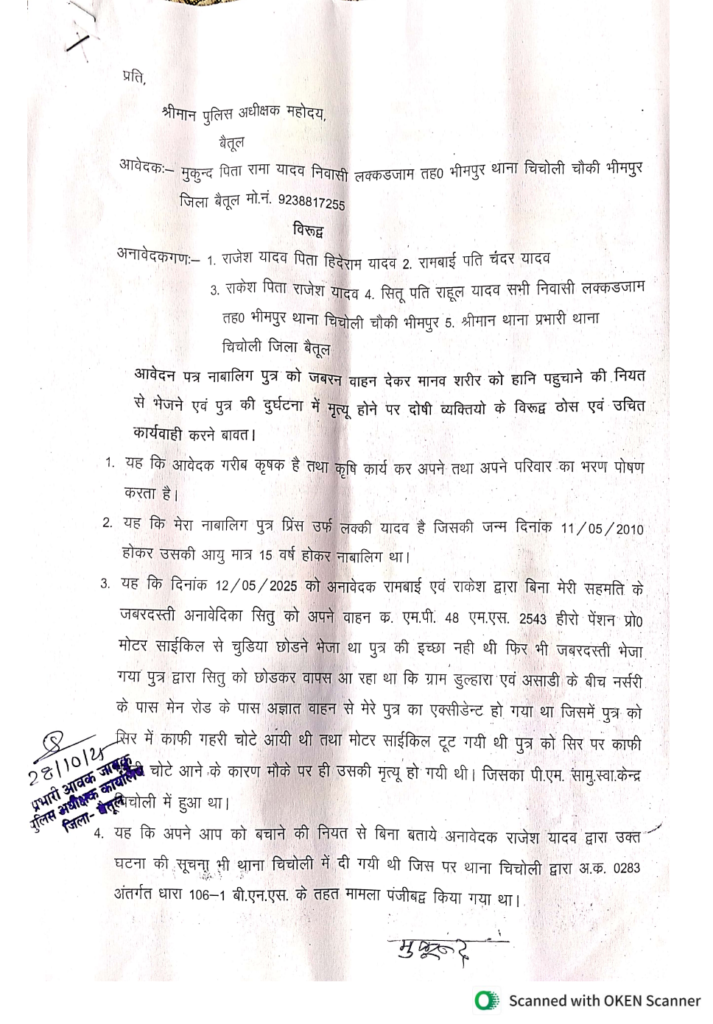 प्रति,
श्रीमान पुलिस अधीक्षक महोदय,
बैतूल
आवेदकः– मुकुन्द पिता रामा यादव निवासी लक्कडजाम तह0 भीमपुर थाना चिचोली चौकी भीमपुर
जिला बैतूल मो.नं. 9238817255
विरूद्व
अनावेदकगणः– 1. राजेश यादव पिता हिदेराम यादव 2. रामबाई पति चंदर यादव
3. राकेश पिता राजेश यादव 4. सितू पति राहूल यादव सभी निवासी लक्कडजाम
तह0 भीमपुर थाना चिचोली चौकी भीमपुर 5. श्रीमान थाना प्रभारी थाना
चिचोली जिला बैतूल
आवेदन पत्र नाबालिग पुत्र को जबरन वाहन देकर मानव शरीर को हानि पहुचाने की नियत
से भेजने एवं पुत्र की दुर्घटना में मृत्यू होने पर दोषी व्यक्तियो के विरूद्व ठोस एवं उचित
कार्यवाही करने बावत।
1. यह कि आवेदक गरीब कृषक है तथा कृषि कार्य कर अपने तथा अपने परिवार का भरण पोषण
करता है।
2. यह कि मेरा नाबालिग पुत्र प्रिंस उर्फ लक्की यादव है जिसकी जन्म दिनांक 11/05/2010
होकर उसकी आयु मात्र 15 वर्ष होकर नाबालिग था।
3. यह कि दिनांक 12/05/2025 को अनावेदक रामबाई एवं राकेश द्वारा बिना मेरी सहमति के
जबरदस्ती अनावेदिका सितु को अपने वाहन क. एम.पी. 48 एम.एस. 2543 हीरो पेंशन प्रो0
मोटर साईकिल से चुडिया छोडने भेजा था पुत्र की इच्छा नही थी फिर भी जबरदस्ती भेजा
गया पुत्र द्वारा सितु को छोडकर वापस आ रहा था कि ग्राम डुल्हारा एवं असाडी के बीच नर्सरी
के पास मेन रोड के पास अज्ञात वाहन से मेरे पुत्र का एक्सीडेन्ट हो गया था जिसमें पुत्र को
सिर में काफी गहरी चोटे आयी थी तथा मोटर साईकिल टूट गयी थी पुत्र को सिर पर काफी
चोटे आने के कारण मौके पर ही उसकी मृत्यू हो गयी थी। जिसका पी.एम. सामु.स्वा.केन्द्र
चिचोली में हुआ था।
28/10/25
प्रभारी आवक जावक
पुलिस अधीक्षक कार्यालय
जिला- बैतूल
4. यह कि अपने आप को बचाने की नियत से बिना बताये अनावेदक राजेश यादव द्वारा उक्त
घटना की सूचना भी थाना चिचोली में दी गयी थी जिस पर थाना चिचोली द्वारा अ.क. 0283
अंतर्गत धारा 106–1 बी.एन.एस. के तहत मामला पंजीबद्व किया गया था।
मुकुन्द
Scanned with OKEN Scanner